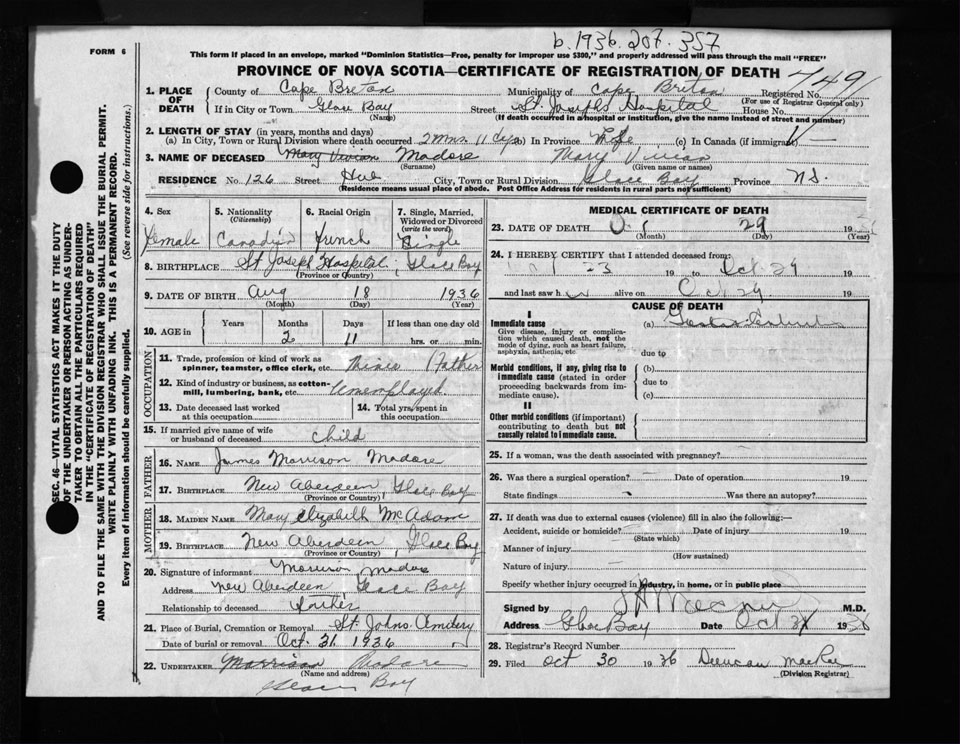 b. 1936. 207. 357
FORM 6
This form if placed in an envelope, marked "Dominion Statistics—Free, penalty for improper use $300," and properly addressed will pass through the mail "FREE"
PROVINCE OF NOVA SCOTIA—CERTIFICATE OF REGISTRATION OF DEATH
749
1. PLACE OF DEATH
County of Cape Breton Municipality of Cape Breton Registered No.
(For use of Registrar General only)
If in City or Town Glace Bay Street St. Josephs Hospital House No.
(Name) (If death occurred in a hospital or institution, give the name instead of street and number)
2. LENGTH OF STAY (in years, months and days)
(a) In City, Town or Rural Division where death occurred 2 Mns. 11 dys (b) In Province Life (c) In Canada (if immigrant)
3. NAME OF DECEASED Mary Vivian Madore Mary Vivian
(Surname) (Given name or names)
RESIDENCE No. 126 Street Hub City, Town or Rural Division Glace Bay Province N.S.
(Residence means usual place of abode. Post Office Address for residents in rural parts not sufficient)
4. Sex 5. Nationality 6. Racial Origin 7. Single, Married, Widowed or Divorced
(Citizenship) (write the word)
Female Canadian French Single
8. BIRTHPLACE St Joseph Hospital, Glace Bay
(Province or Country)
9. DATE OF BIRTH Aug 18 1936
(Month) (Day) (Year)
10. AGE in Years Months Days If less than one day old
2 11 hrs. or min.
OCCUPATION
11. Trade, profession or kind of work as spinner, teamster, office clerk, etc. (Father
12. Kind of industry or business, as cotton-mill, lumbering, bank, etc. Unemployed
13. Date deceased last worked at this occupation
14. Total yrs. spent in this occupation
15. If married give name of wife or husband of deceased child
FATHER
16. NAME James Morrison Madore
17. BIRTHPLACE New Aberdeen, Glace Bay
(Province or Country)
MOTHER
18. MAIDEN NAME Mary Elizabeth McAdam
19. BIRTHPLACE New Aberdeen, Glace Bay
(Province or Country)
20. Signature of informant Morrison Madore
Address New Aberdeen, Glace Bay
Relationship to deceased Father
21. Place of Burial, Cremation or Removal St. Johns Cemetery
Date of burial or removal Oct. 31 1936
22. UNDERTAKER Morrison Madore
(Name and address)
Glace Bay
MEDICAL CERTIFICATE OF DEATH
23. DATE OF DEATH Oct 29 19
(Month) (Day) (Year)
24. I HEREBY CERTIFY that I attended deceased from:
23 19 to Oct 29 19
and last saw h alive on Oct 29 19
CAUSE OF DEATH
I
Immediate cause
Give disease, injury or complication which caused death, not the mode of dying, such as heart failure, asphyxia, asthenia, etc.
(a)
due to
Morbid conditions, if any, giving rise to immediate cause (stated in order proceeding backwards from immediate cause).
(b)
due to
(c)
II
Other morbid conditions (if important) contributing to death but not causally related to immediate cause.
25. If a woman, was the death associated with pregnancy?
26. Was there a surgical operation? Date of operation 19
State findings Was there an autopsy?
27. If death was due to external causes (violence) fill in also the following:—
Accident, suicide or homicide? Date of injury 19
(State which)
Manner of injury
(How sustained)
Nature of injury
Specify whether injury occurred in industry, in home, or in public place
Signed by M.D.
Address Glace Bay Date Oct 1936
28. Registrar's Record Number
29. Filed Oct 30 1936 Duncan MacRae
(Division Registrar)
SEC. 46—VITAL STATISTICS ACT MAKES IT THE DUTY
OF THE UNDERTAKER OR PERSON ACTING AS UNDER-
TAKER TO OBTAIN ALL THE PARTICULARS REQUIRED
IN THE "CERTIFICATE OF REGISTRATION OF DEATH"
AND TO FILE THE SAME WITH THE DIVISION REGISTRAR WHO SHALL ISSUE THE BURIAL PERMIT.
WRITE PLAINLY WITH UNFADING INK. THIS IS A PERMANENT RECORD.
Every item of information should be carefully supplied. (See reverse side for instructions.)